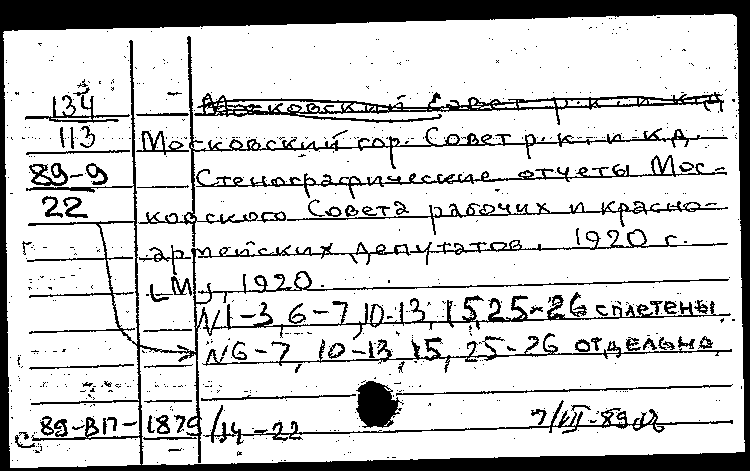 134
113
89-9
22
Московский Совет р.к. и к.д.
Московский гор. Совет р.к. и к.д.
Стенографические отчеты Мос-
ковского Совета рабочих и красно-
армейских депутатов. 1920 г.
[М], 1920.
N1-3, 6-7, 10-13, 15, 25-26 сплетены
N6-7, 10-13, 15, 25-26 отдельно
89-ВП-1879/14-22
7/VII-89